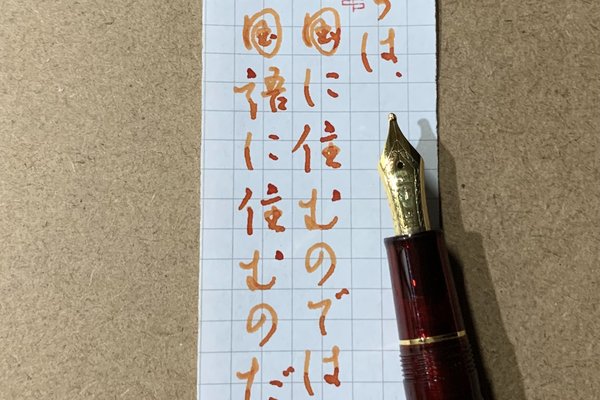 は、
国に住むのでは
国語に住むのだ